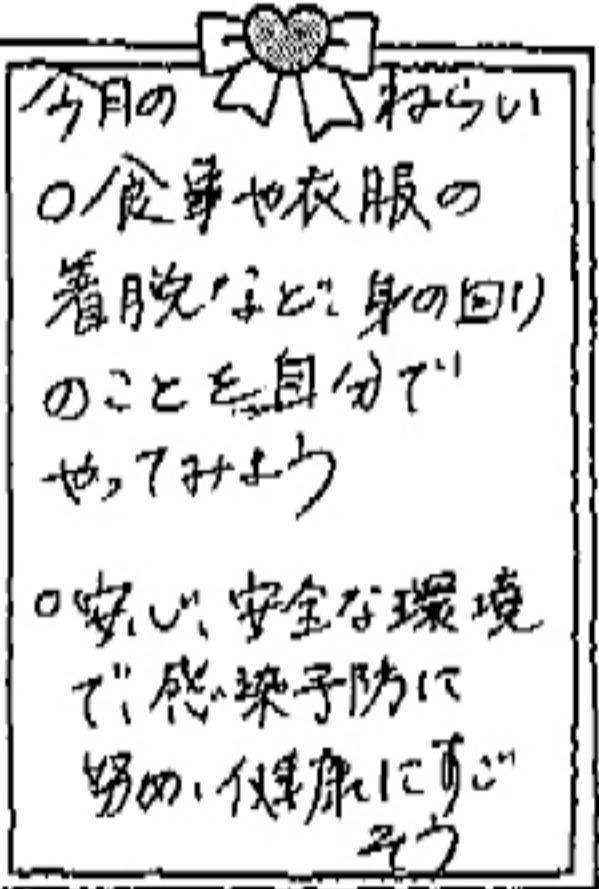 今月の ねらい
○食事や衣服の
着脱など、身の回り
のことを自分で
やってみよう
○安心、安全な環境
で、感染予防に
努め、健康にすご
そう